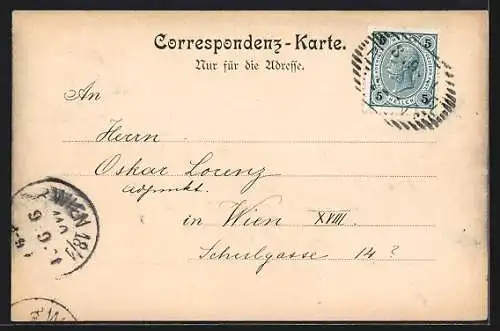 Correspondenz-Karte.
Nur für die Adresse.
An
Herrn
Oskar Lorenz
Adjunkt
in Wien XVIII
Schulgasse 14?
5 5
5 5
HELLER
WIEN 18/1